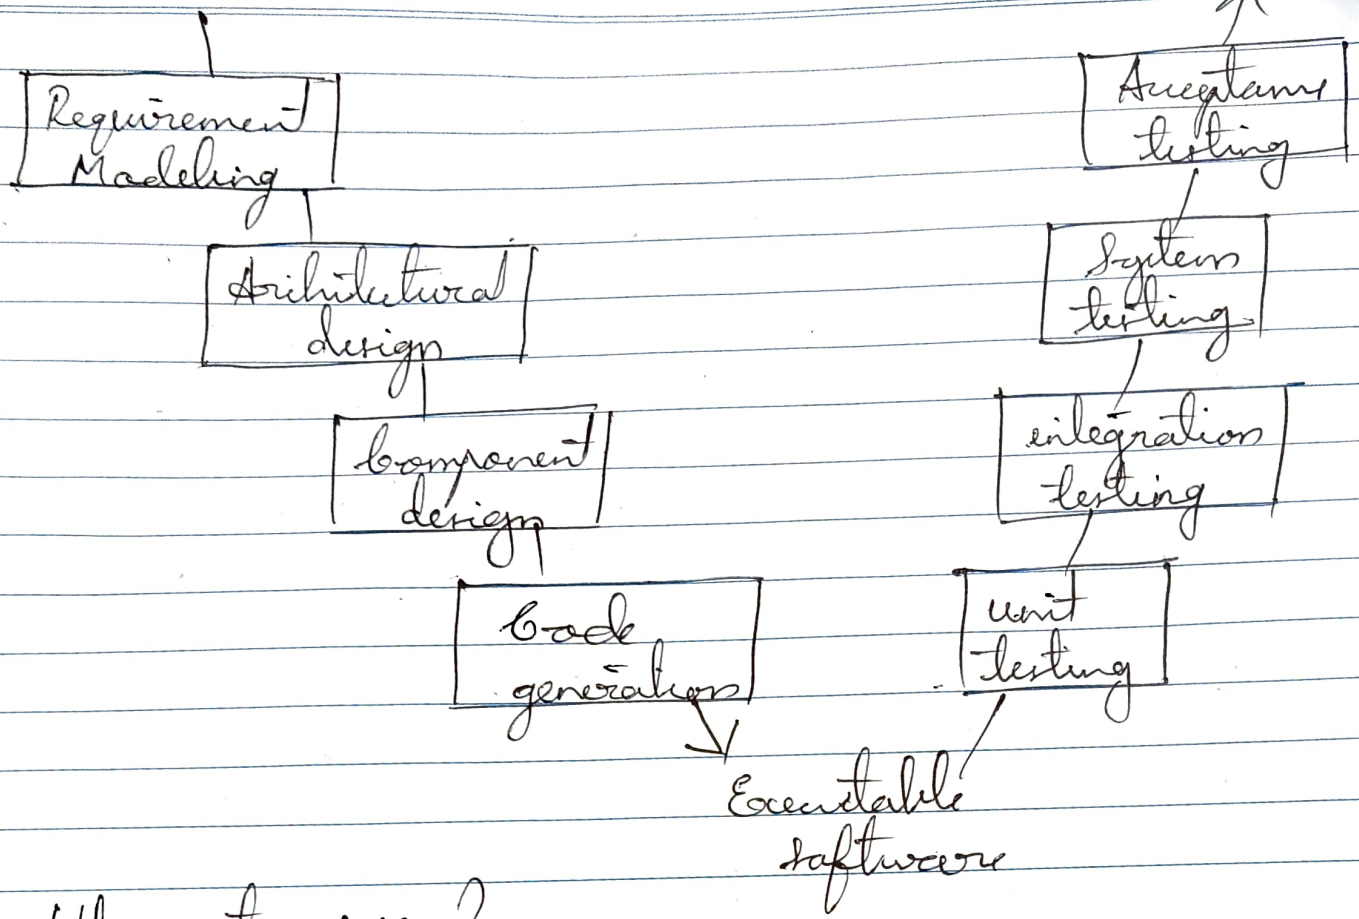 Requirement
Modeling
Architectural
design
Component
design
Code
generation
Executable
software
unit
testing
integration
testing
System
testing
Acceptance
testing